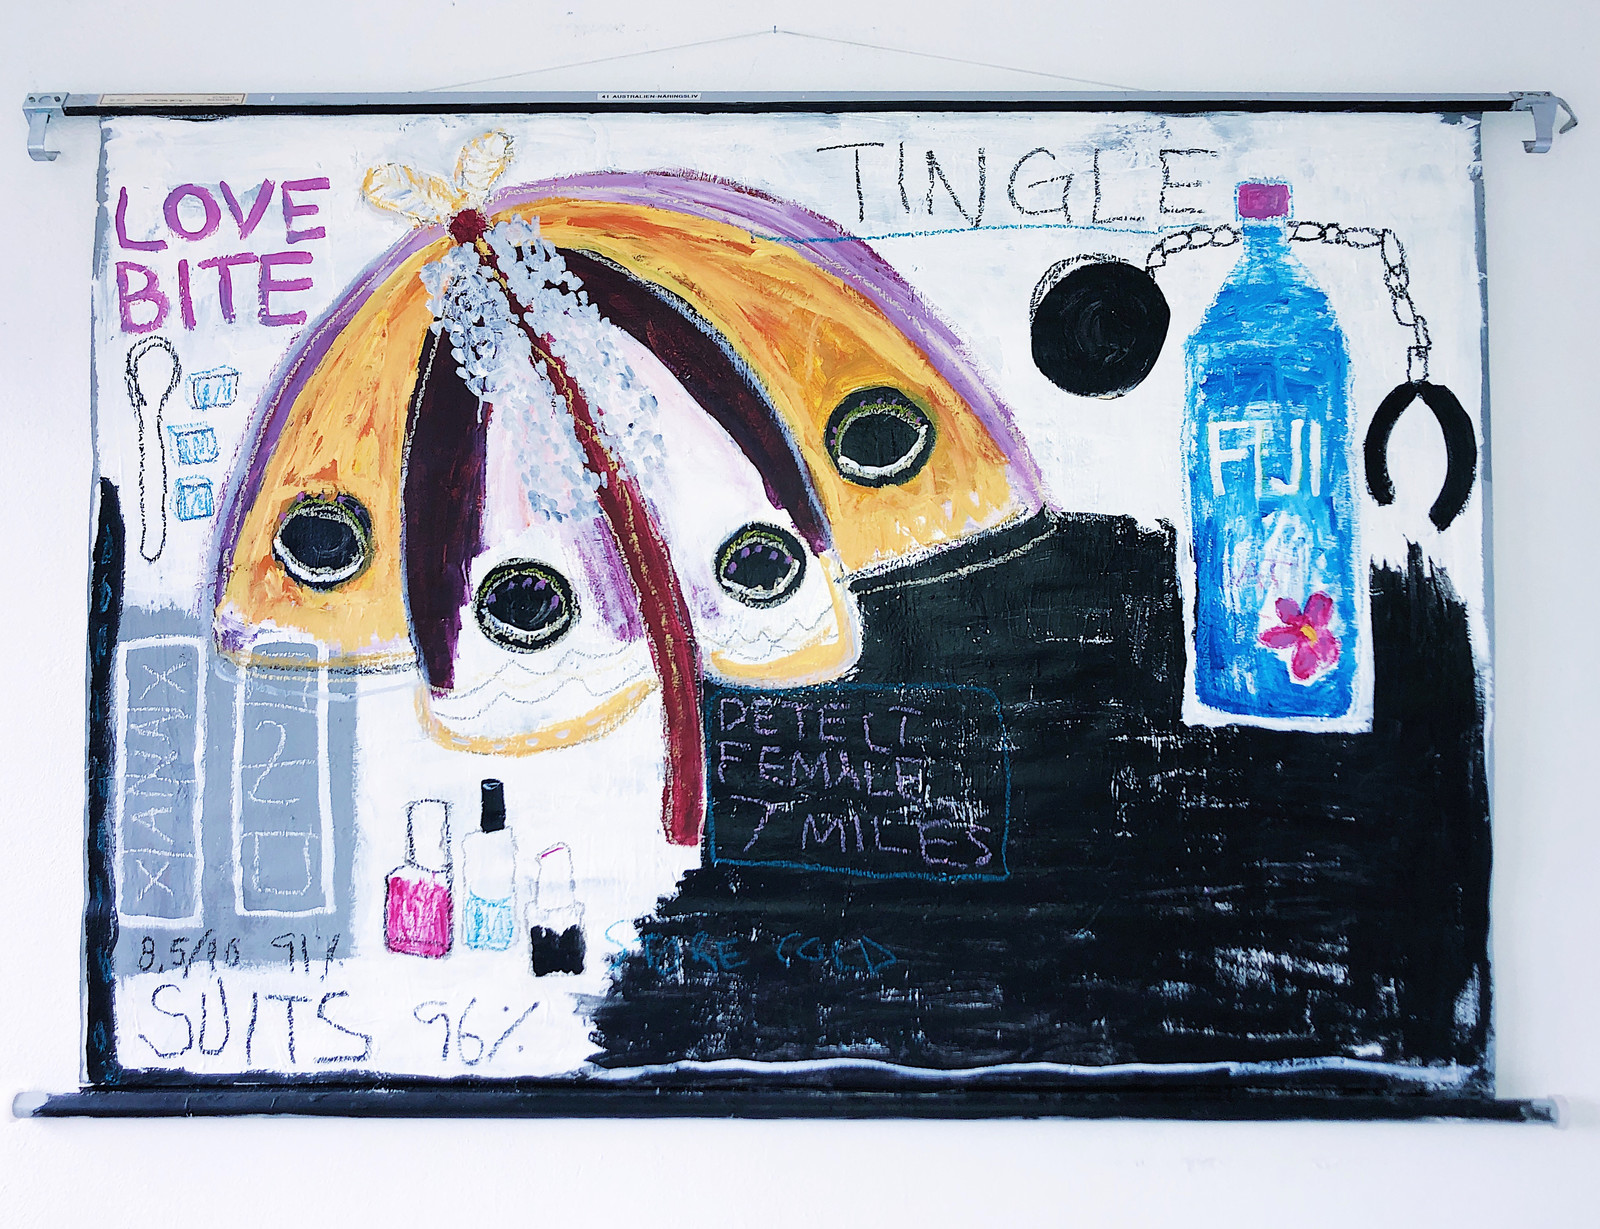 41 AUSTRALIEN-NÄRINGSLIV
LOVE
BITE
TINGLE
FIJI
XIANVIX
120
DETECT
FEMALE
7 MILES
8.5/10 91%
STORE COLD
SUITS 96%